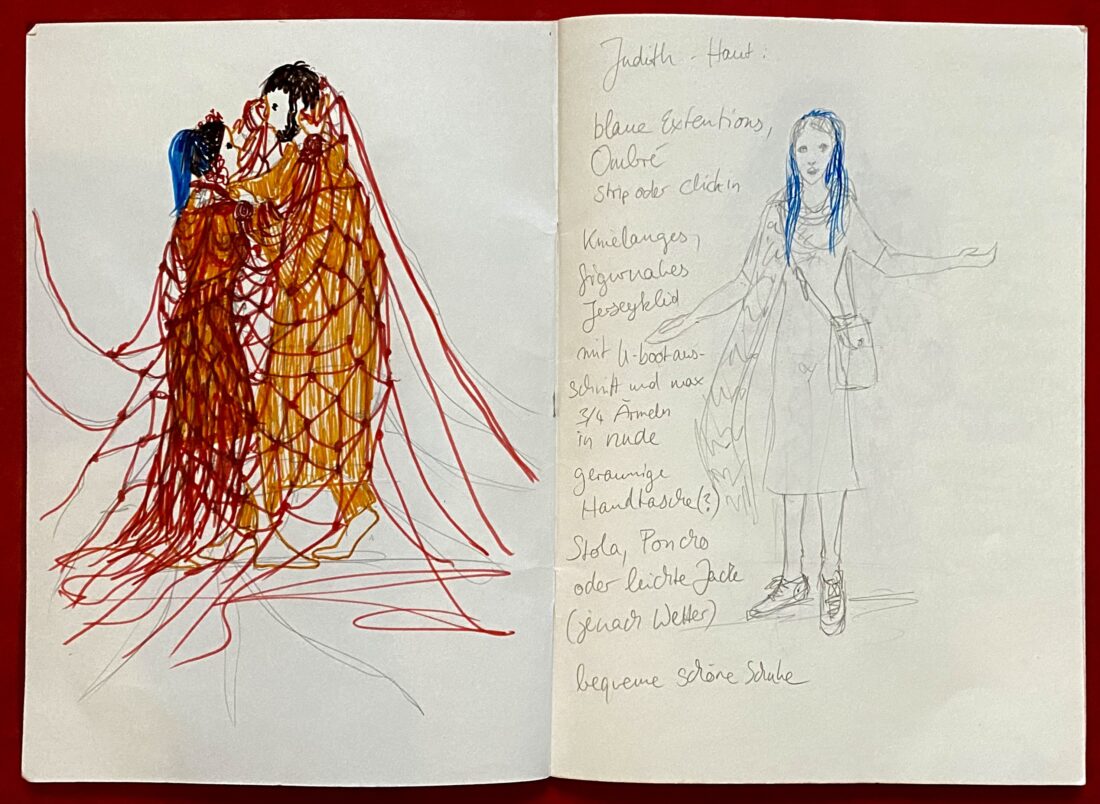 Judith - Haut:
blaue Extentions,
Ombré
strip oder click in
Knielanges,
figurnahes
Jerseyklid
mit U-bootaus-
schnitt und max
3/4 Ärmeln
in nude
geräumige
Handtasche(?)
Stola, Poncho
oder leichte Jacke
(jenach Wetter)
bequeme schöne Schuhe